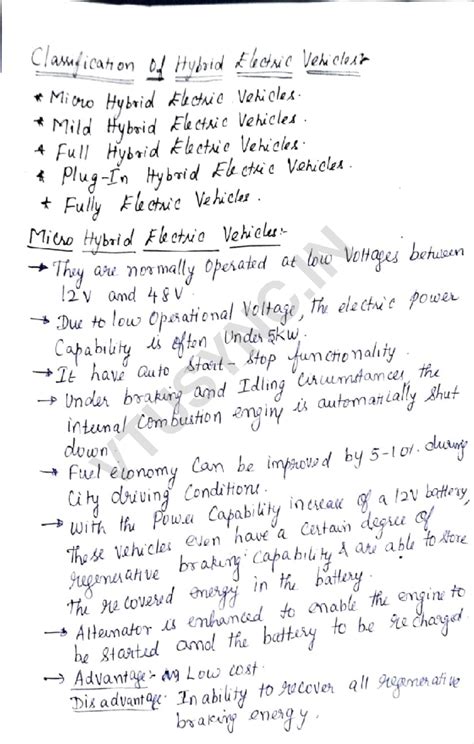 Classification of Hybrid Electric Vehicles:-
* Micro Hybrid Electric Vehicles.
* Mild Hybrid Electric Vehicles.
* Full Hybrid Electric Vehicles.
* Plug-In Hybrid Electric Vehicles.
* Fully Electric Vehicles.
Micro Hybrid Electric Vehicles:-
→ They are normally operated at low Voltages between
12V and 48V.
→ Due to low Operational Voltage, The electric power
Capability is often under 5KW.
→ It have Auto Start-Stop functionality.
→ Under braking and Idling Circumstances, the
internal Combustion engine is automatically shut
down.
→ Fuel economy Can be improved by 5-10% during
City driving Conditions.
→ With the Power Capability increase of a 12V battery,
These vehicles even have a Certain degree of
regenerative braking Capability & are able to store
The recovered energy in the battery.
→ Alternator is enhanced to enable the engine to
be started and the battery to be recharged.
→ Advantage:- Low Cost.
Disadvantage: Inability to recover all regenerative
braking energy.
VTUSYNC.IN